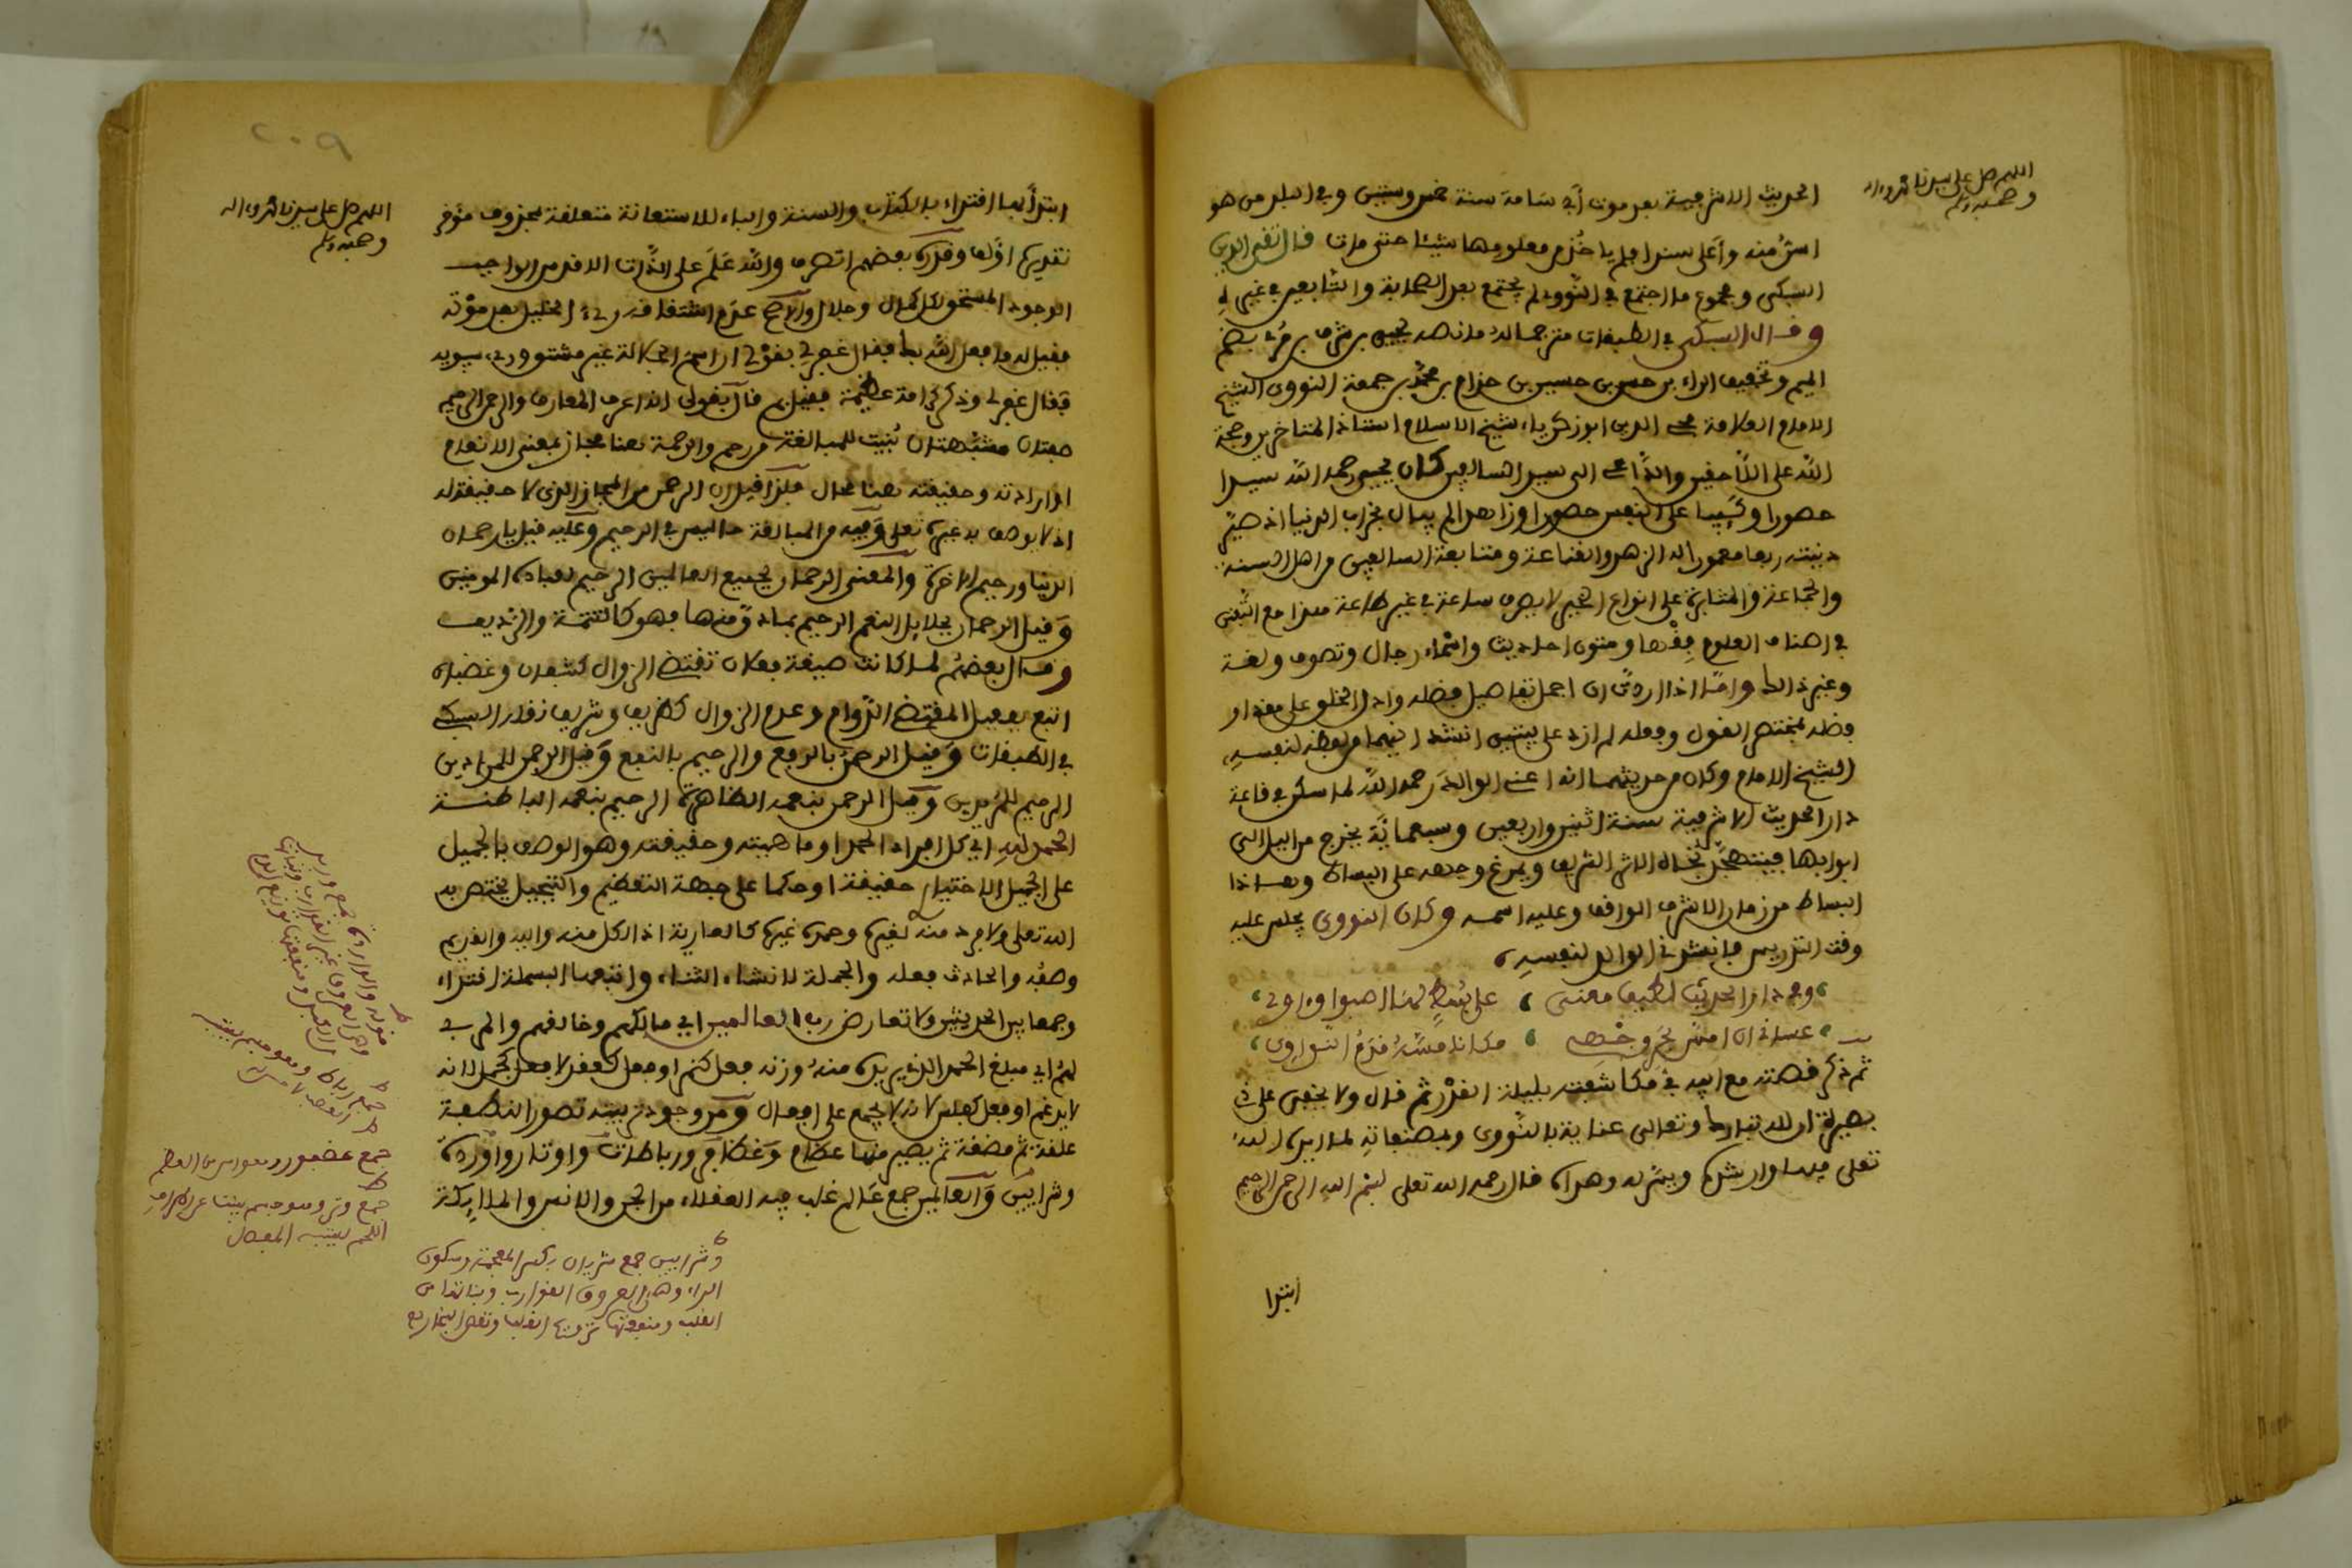 اللهم صل على سيدنا محمد وءاله
وصحبه وسلم
الحديث الاشرفية بعد موت أبي شامة سنة خمس وستين وفي البلد من هو
اسن منه وأعلى سندا فلم ياخذ من معلومها شيئا حتى مات قال تقي الدين
السبكي ومجموع ما اجتمع في النووي لم يجتمع بعد الصحابة والتابعين في غيره
وقال السبكي في الطبقات مترجما له ما نصه يحيى بن شرف بن مري بضم
الميم وتخفيف الراء بن حسن بن حسين بن حزام بن محمد بن جمعة النووي الشيخ
الامام العلامة محيي الدين ابو زكرياء شيخ الاسلام استاذ المتاخرين وحجة
الله على اللاحقين والداعي الى سبيل السالفين كان يحيى رحمه الله سيدا
حصورا وليثا على النفس هصورا وزاهدا لم يبال بخراب الدنيا اذ صير
دينه ربعا معمورا له الزهد والقناعة ومتابعة السالفين من اهل السنة
والجماعة والمثابرة على انواع الخير لا يصرف ساعة في غير طاعة هذا مع التفنن
في اصناف العلوم فقها ومتون احاديث واسماء رجال وتصوف ولغة
وغير ذالك وانا اذا اردت ان اجمل تفاصيل فضله وادل الخلق على مقدار
فضله بمختصر القول وفصله لم ازد على بيتين انشدانيهما من لفظه لنفسه
الشيخ الامام وكان من حديثهما انه اعني الوالد رحمه الله لما سكن في قاعة
دار الحديث الاشرفية سنة اثنين واربعين وسبعمائة يخرج من الليل الى
ايوانها فيتهجد تجاه الاثر الشريف ويمرغ وجهه على البساط وهاذا
البساط من زمان الاشرف الواقف وعليه اسمه وكان النووي يجلس عليه
وقت التدريس فانشدني الوالد لنفسه
وفي دار الحديث لطيف معنى على بسط لها اصبوا وءاوي
عساني ان امس بحر وجهي مكانا مسه قدم النواوي
ثم ذكر قصته مع ابيه في مكاشفته بليلة القدر ثم قال ولا يخفى على ذي
بصيرة ان لله تبارك وتعالى عناية بالنووي وبمصنفاته
تعلى فيما وارشده ويسر له وهداه قال رحمه الله تعلى بسم الله الرحمن الرحيم
ابتدا
٢٠٩
اللهم صل على سيدنا محمد وءاله
وصحبه وسلم
ابتدأ بها اقتداء بالكتاب والسنة والباء للاستعانة متعلقة بمحذوف مؤخر
تقديره اؤلف وقدره بعضهم اتصرف والله علم على الذات الاقدس الواجب
الوجود المستحق لكل كمال وجلال والاصح عدم اشتقاقه رءي الخليل بعد موته
فقيل له ما فعل الله بك فقال غفر لي بقولي ان اسم الجلالة غير مشتق ورءي سيبويه
فقال غفر لي وذكر كرامة عظيمة فقيل بم قال بقولي انه اعرف المعارف والرحمن الرحيم
صفتان مشبهتان بنيت للمبالغة من رحم والرحمة هنا مجاز بمعنى الانعام
او ارادته وحقيقته هنا محال فلذا قيل ان الرحمن من المجاز الذي لا حقيقة له
اذ لا يوصف به غيره تعلى وفيه من المبالغة ما ليس في الرحيم وعليه قيل يا رحمان
الدنيا ورحيم الاخرة والمعنى الرحمان بجميع العالمين الرحيم بعباده المومنين
وقيل الرحمان بجلايل النعم الرحيم بما دق منها فهو كالتتمة والرديف
وقال بعضهم لما كانت صيغة فعلان تقتضي الزوال كشبعان وغضبان
اتبع بفعيل المقتضي الدوام وعدم الزوال كظريف وشريف نقله السبكي
في الطبقات وقيل الرحمن بالرفع والرحيم بالنفع وقيل الرحمن للمرادين
الرحيم للمريدين وقيل الرحمن بنعمه الظاهرة الرحيم بنعمه الباطنة
الحمد لله اي كل افراد الحمد او ماهيته وحقيقته وهو الوصف بالجميل
على الجميل الاختياري حقيقة او حكما على جهة التعظيم والتبجيل مختص به
الله تعلى ولا فرد منه لغيره وحمد غيره كالعارية اذ الكل منه واليه والقديم
وصفه والحادث فعله والجملة لانشاء الثناء واتبعها البسملة اقتداء
وجمعا بين الحديثين ولا تعارض رب العالمين اي مالكهم وخالقهم والمربي
لهم اي مبلغ الحمد الذي يريده منه وزنه فعل كنم او فعل كفعل لا فعل كجمل لانه
لا يدغم او فعل كفلس لانه لا يجمع على افعال ومر وجود تربيته تصور النطفة
علقة ثم مضغة ثم يصير منها عظام وغضافر ورباطات واوتار واوردة
وشرايين والعالمين جمع عالم غلب فيه العقلاء من الجن والانس والملائكة
قوله والواردة جمع وريد
وهي العروق غير الضوارب ونباتها
من الكبد ومنفعتها توزيع الدم
جمع رباط وهو جسم يشبه
العصب
جمع غضروف وهو الين من العظم
جمع وتر وهو جسم ينبت من اطراف
اللحم يشبه المفصل
وشرايين جمع شريان بكسر المعجمة وسكون
الراء وهي العروق الضوارب ونباتها من
القلب ومنفعتها ترويح القلب ونفض البخار عنه